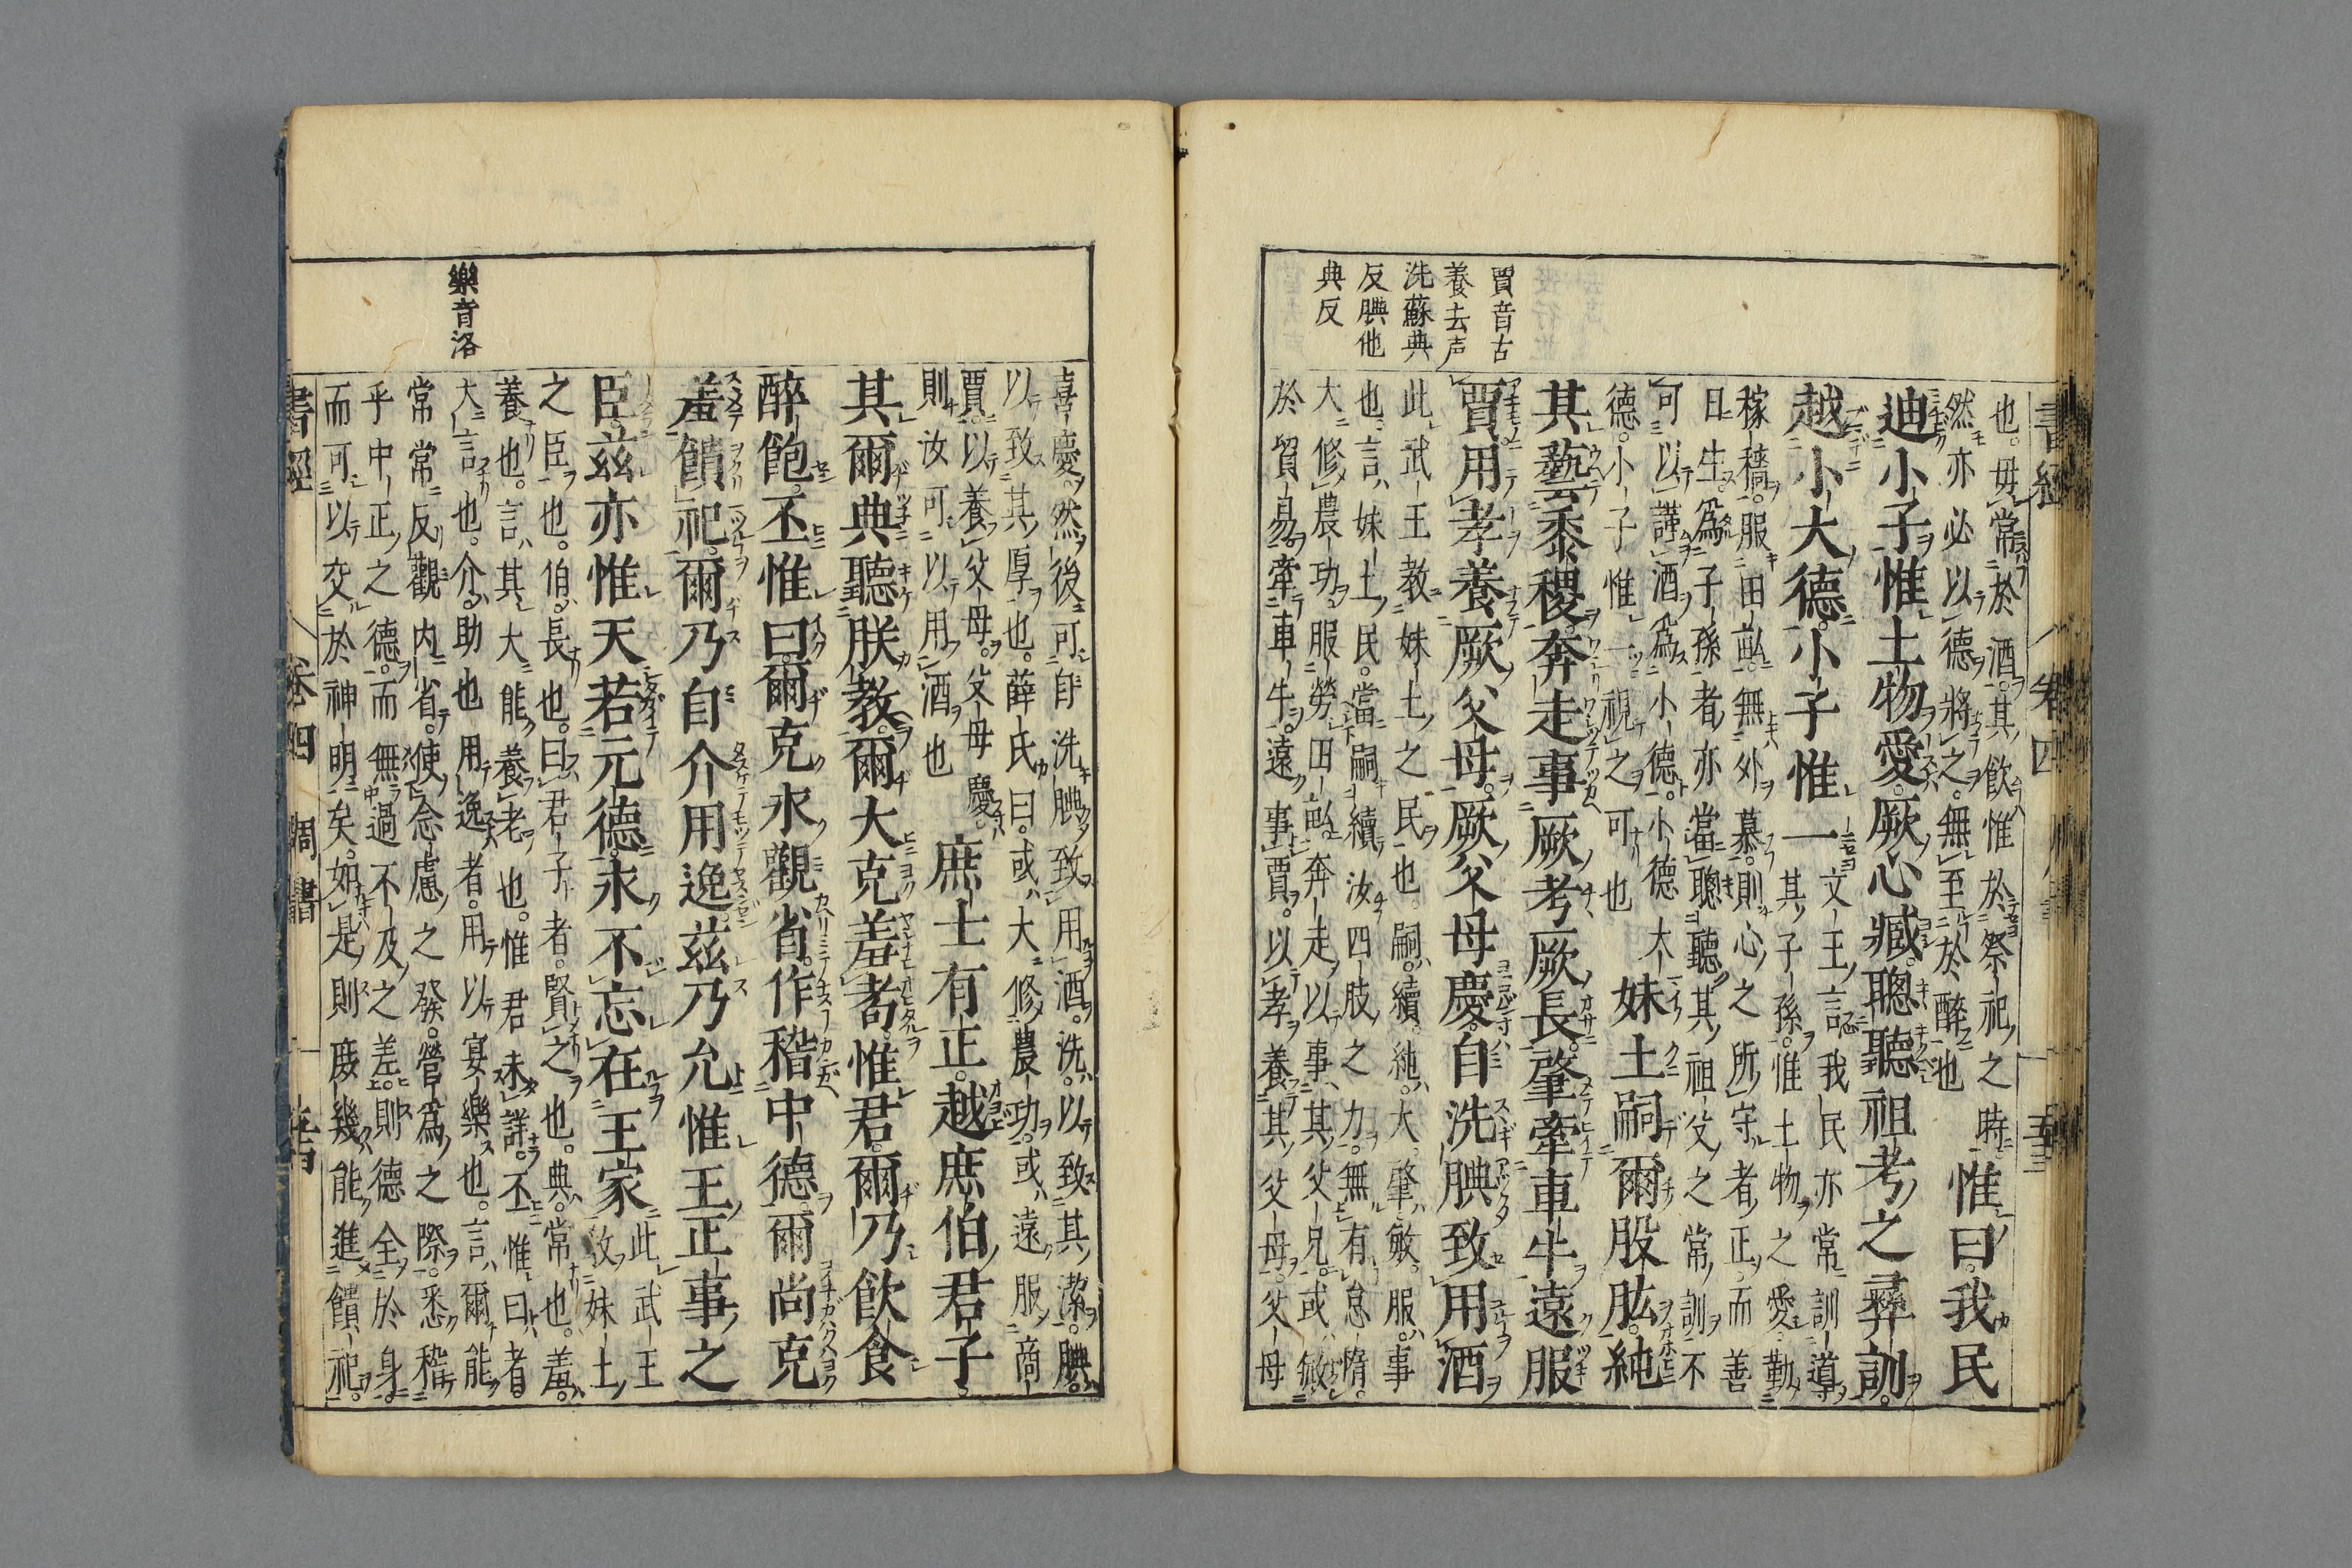 賈音古
養去声
洗蘇典
反腆他
典反
書經 卷四
也。毋常於酒。其飲惟於祭祀之時
然亦必以德將之。無至於醉也
惟曰。我民
迪小子惟土物愛。厥心臧。聰聽祖考之彝訓。
越小大德。小子惟一
文王言我民亦常訓導
其子孫。惟土物之愛。勤
稼穡。服田畝。無外慕。則心之所守者正。而善
日生。爲子孫者亦當聰聽其祖父之常訓不
可以謹酒爲小德。小德大
德。小子惟一視之可也
妹土嗣爾股肱。純
其藝黍稷。奔走事厥考厥長。肇牽車牛遠服
賈用孝養厥父母。厥父母慶。自洗腆致用酒
此武王教妹土之民也。嗣。續。純。大。肇。敏。服。事
也。言妹土民。當嗣續汝四肢之力。無有怠惰。
大修農功。服勞田畝。奔走以事其父兄。或敏
於貿易。牽車牛。遠事賈。以孝養其父母。父母
樂音洛
喜慶。然後可自洗腆致用酒。洗。以致其潔。腆。
以致其厚也。薛氏曰。或大修農功。或遠服商
賈。以養父母。父母慶。
則汝可以用酒也
庶士有正。越庶伯君子。
其爾典聽朕教。爾大克羞耇。惟君。爾乃飲食
醉飽。丕惟曰。爾克永觀省。作稽中德。爾尚克
羞饋祀。爾乃自介用逸。茲乃允惟王正事之
臣。茲亦惟天若元德。永不忘在王家
此武王
教妹土
之臣也。伯。長也。曰君子者。賢之也。典。常也。羞。
養也。言其大能養老也。惟君未詳。丕惟曰者。
大言也。介。助也。用逸者。用以宴樂也。言爾能
常常反觀内省。使念慮之發。營爲之際。悉稽
乎中正之德。而無過不及之差。則德全於身。
而可以交於神明矣。如是則庶幾能進饋祀。
書經 卷四 周書